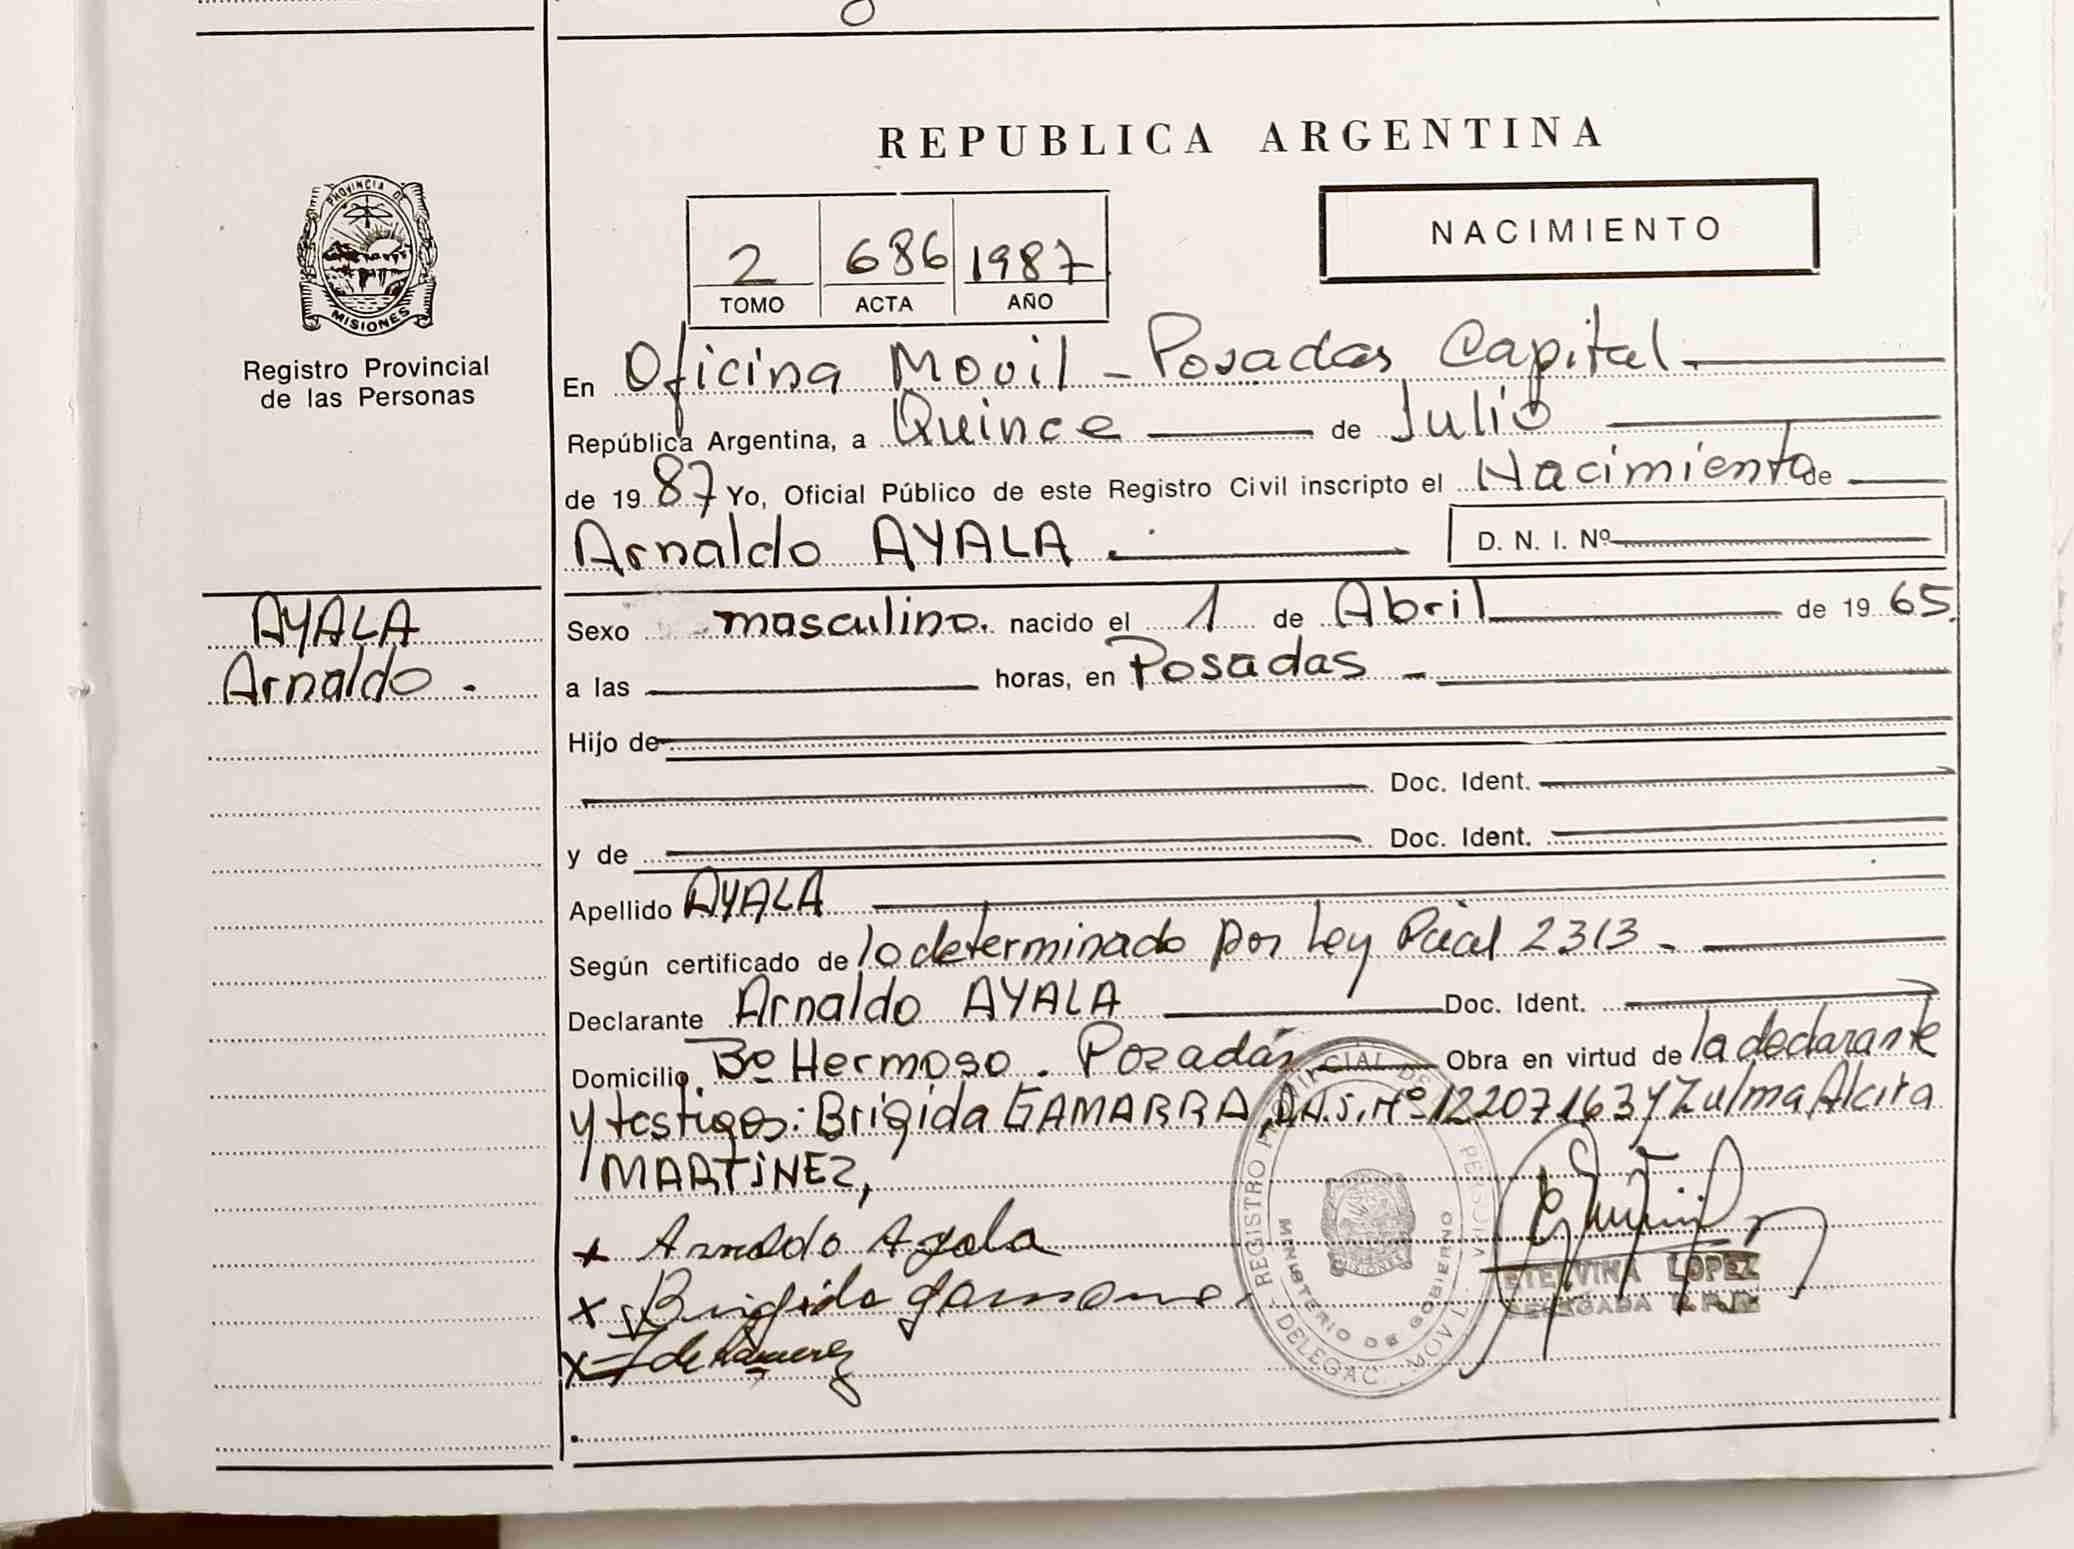 REPUBLICA ARGENTINA
NACIMIENTO
2 686 1987
TOMO ACTA AÑO
PROVINCIA DE
MISIONES
Registro Provincial
de las Personas
En Oficina Movil - Posadas Capital
República Argentina, a Quince de Julio
de 19 87 Yo, Oficial Público de este Registro Civil inscripto el Nacimiento de
Arnaldo AYALA D. N. I. Nº
AYALA
Arnaldo
Sexo masculino. nacido el 1 de Abril de 19 65
a las horas, en Posadas
Hijo de
Doc. Ident.
y de Doc. Ident.
Apellido AYALA
Según certificado de lo determinado por Ley Pcial 2313
Declarante Arnaldo AYALA Doc. Ident.
Domicilio Bº Hermoso. Posadas Obra en virtud de la declarante
y testigos: Brigida GAMARRA, Nº 12207163 y Zulma Alcira
MARTINEZ,
x Arnaldo Ayala
x Brigida
x
REGISTRO PROVINCIAL DE LAS PERSONAS
MINISTERIO DE GOBIERNO
MISIONES
DELEGAC. MOVIL
ETELVINA LOPEZ
DELEGADA